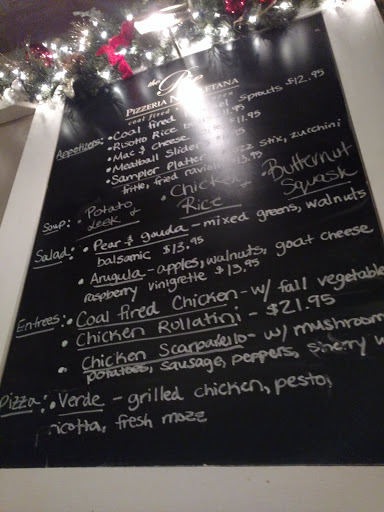 the Pie
PIZZERIA
coal fired
Appetizers: • Coal fired sprouts $12.95
• Risotto Rice
• Mac & cheese
• Meatball Slider
• Sampler Platter stix, zucchini
fritte, fried ravioli $13.95
Soup: • Potato Leek • Chicken & Rice • Butternut Squash
Salad: • Pear & gouda - mixed greens, walnuts
balsamic $13.95
• Arugula - apples, walnuts, goat cheese
raspberry vinigrette $13.95
Entrees: • Coal fired Chicken - w/ fall vegetable
• Chicken Rollatini - $21.95
• Chicken Scarpariello - w/ mushroom
potatoes, sausage, peppers, sherry w
Pizza: • Verde - grilled chicken, pesto,
ricotta, fresh mozz